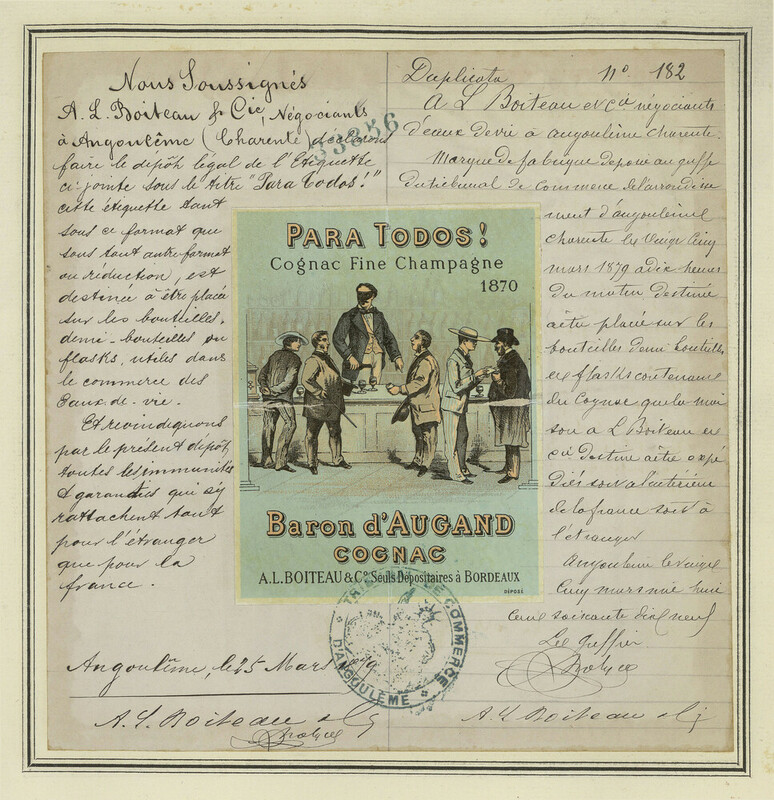 Nous Soussignés
A. L. Boiteau & Cie, Négociants
à Angoulême (Charente) déclarons
faire le dépôt légal de l'Etiquette
ci-jointe sous le titre "Para Todos!"
cette étiquette tant
sous ce format que
sous tout autre format
ou réduction, est
destinée à être placée
sur les bouteilles,
demi-bouteilles ou
flasks, utiles dans
le commerce des
Eaux-de-vie.
Et revindiquons
par le présent dépôt,
toutes les immunités
& garanties qui s'y
rattachent tant
pour l'étranger
que pour la
france.
Angoulême, le 25 Mars
A. L. Boiteau & Cie
Duplicata no. 182
A L Boiteau et Cie négociants
à angoulême charente.
Marque de fabrique déposé au greffe
du tribunal de Commerce de l'arrondisse
ment d'angoulême
charente le Vingt Cinq
mars 1879 à dix heures
du matin destiné
a être placé sur les
bouteilles demi bouteilles
et flasks contenant
du Cognac que la mai
son A L Boiteau et
Cie destine a être expé
diés soit a l'intérieur
de la france soit à
l'étranger
Angoulême le vingt
Cinq mars mil huit
cent soixante dix neuf
Le Greffier
A. L. Boiteau & Cie
PARA TODOS!
Cognac Fine Champagne
1870
Baron d'AUGAND
COGNAC
A.L.BOITEAU & Co. Seuls Dépositaires à BORDEAUX
DÉPOSÉ
TRIBUNAL DE COMMERCE
D'ANGOULÊME